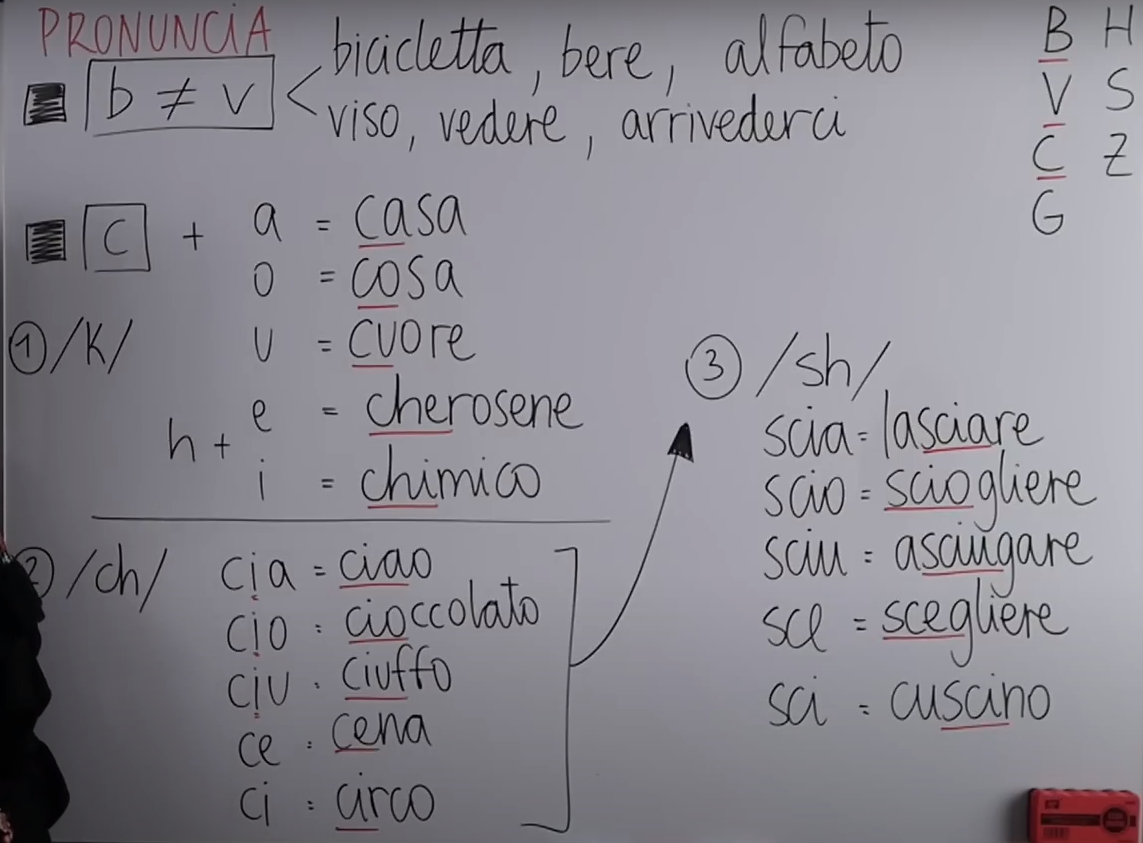 PRONUNCIA
b ≠ v < bicicletta, bere, alfabeto
viso, vedere, arrivederci
C + a = casa
o = cosa
① /K/ u = cuore
h + e = cherosene
i = chimico
② /ch/ cia = ciao
cio = cioccolato
ciu = ciuffo
ce = cena
ci = circo
③ /sh/
scia = lasciare
scio = sciogliere
sciu = asciugare
sce = scegliere
sci = cuscino
B H
V S
C Z
G